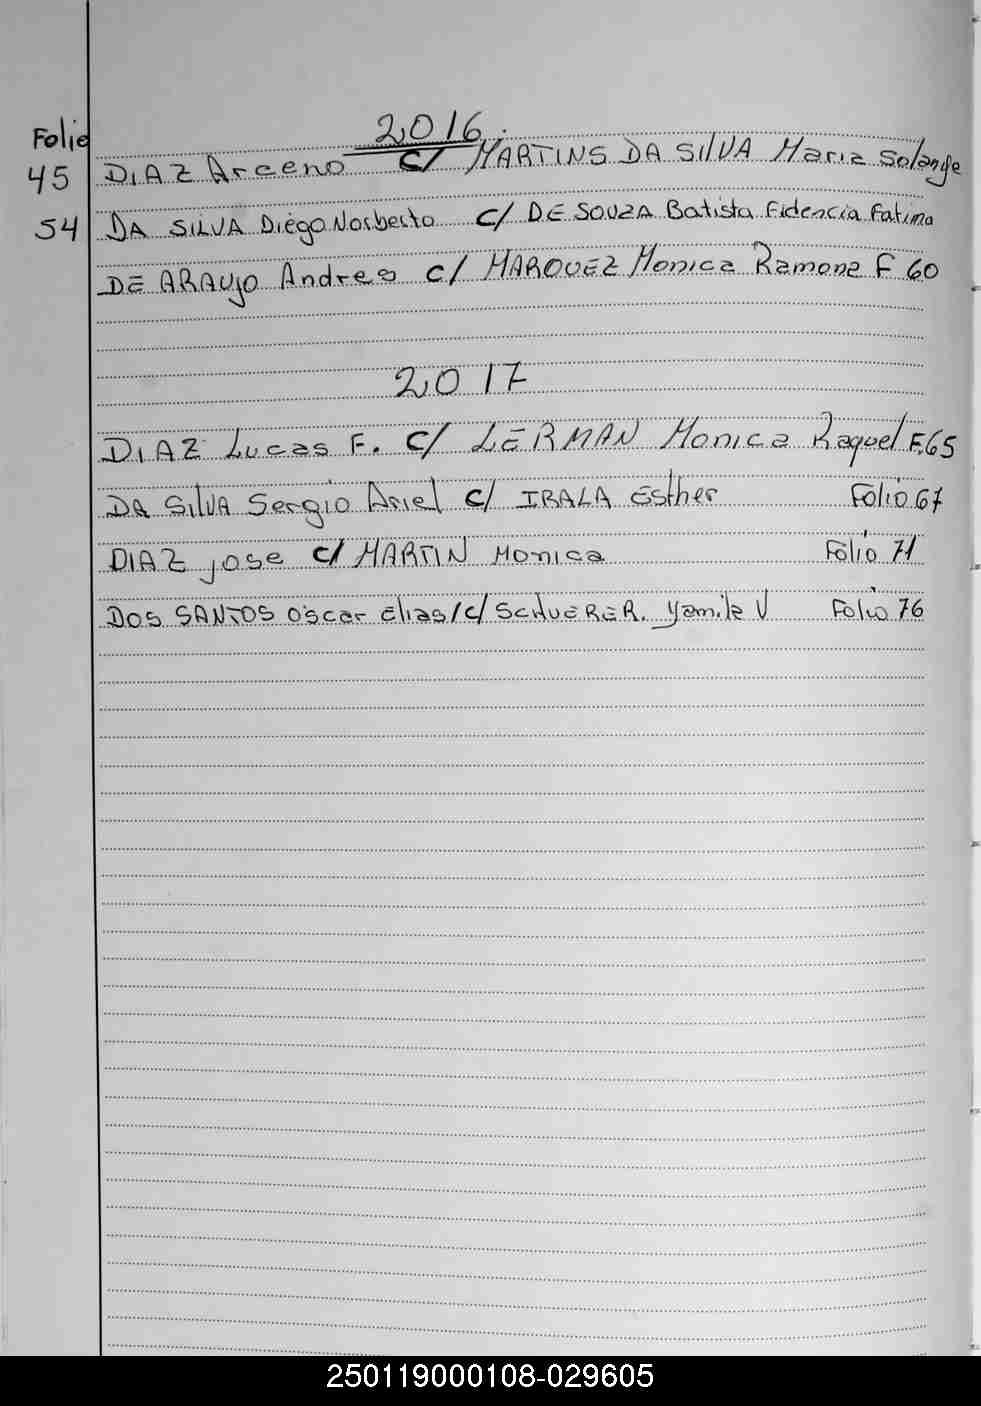 2016.
Folio
45 DIAZ Arceno c/ MARTINS DA SILVA Maria Solange
54 DA SILVA Diego Norberto c/ DE SOUZA Batista Fidencia Fatima
DE ARAUJO Andres c/ MARQUEZ Monica Ramona F 60
2017
DIAZ Lucas F. c/ LERMAN Monica Raquel F.65
DA SILVA Sergio Ariel c/ IRALA Esther Folio 67
DIAZ Jose c/ MARTIN Monica Folio 71
DOS SANTOS Oscar Elias/c/ SCHUERER. Yamila V Folio 76
250119000108-029605